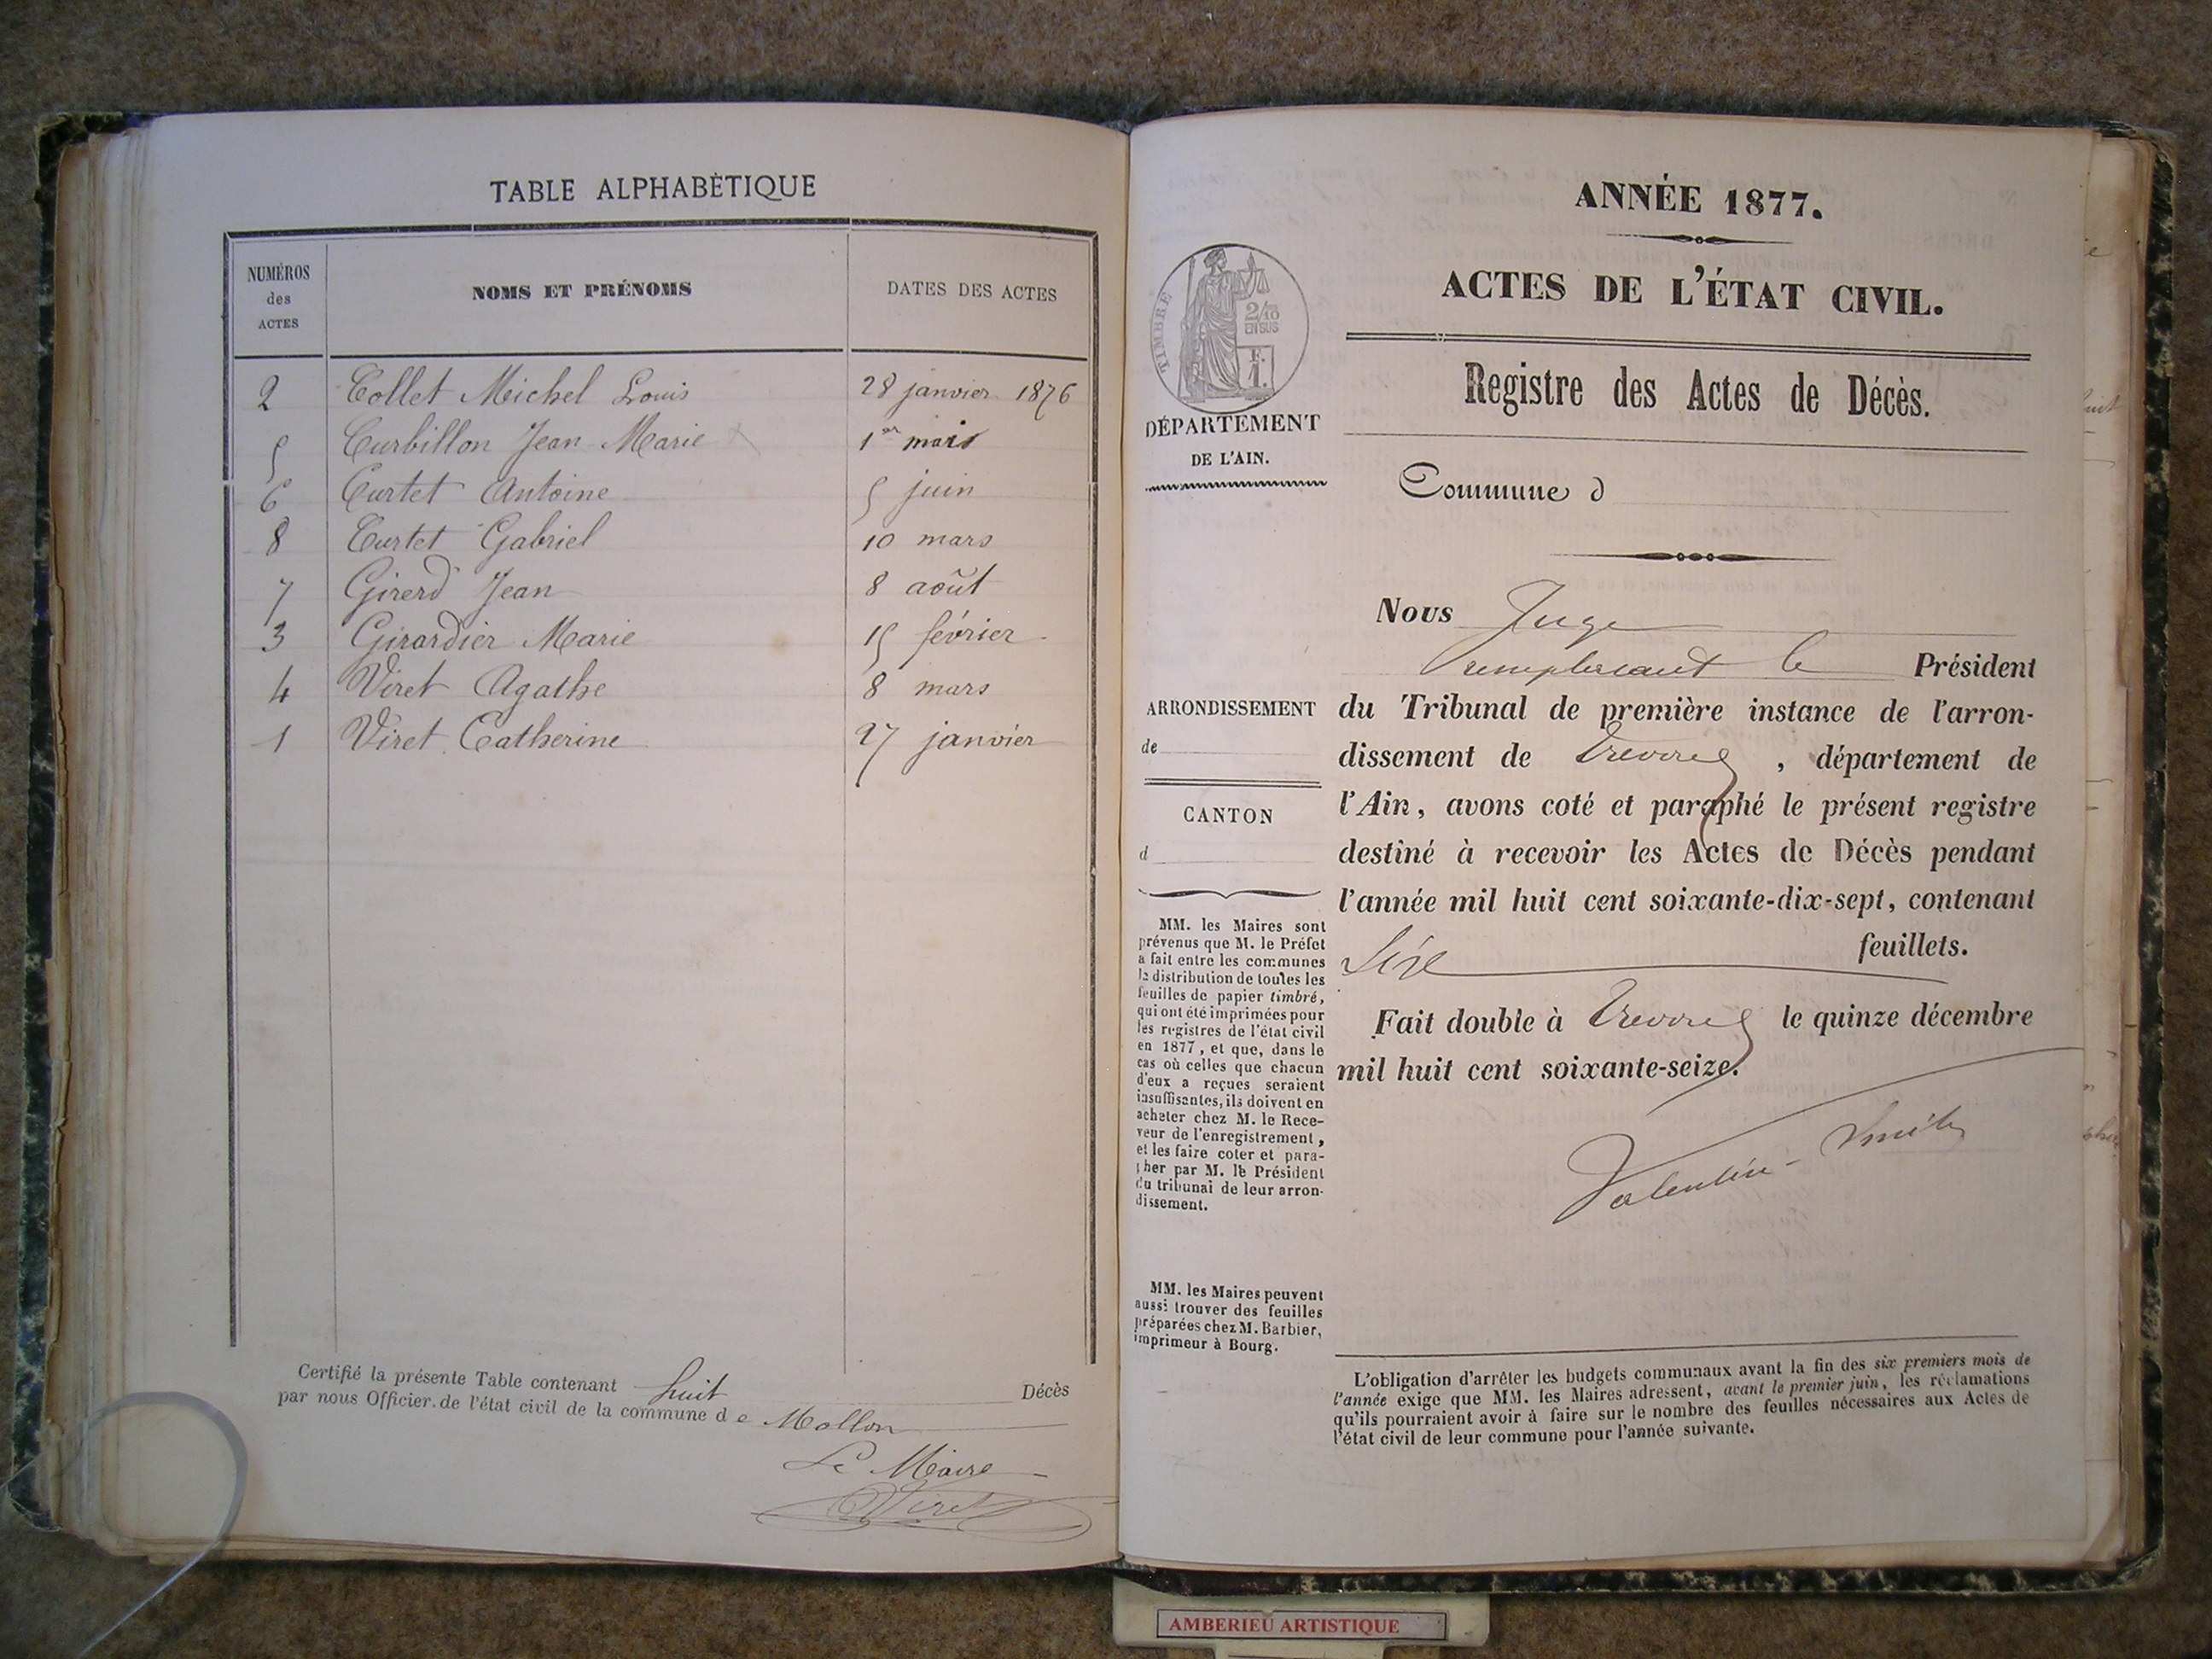 TABLE ALPHABÈTIQUE
NUMÉROS
des
ACTES
NOMS ET PRÉNOMS
DATES DES ACTES
2 Collet Michel Louis 28 janvier 1876
5 Curbillon Jean Marie 1er mars
6 Curtet Antoine 5 juin
8 Curtet Gabriel 10 mars
7 Girerd Jean 8 août
3 Girardier Marie 15 février
4 Viret Agathe 8 mars
1 Viret Catherine 27 janvier
Certifié la présente Table contenant huit Décès
par nous Officier de l'état civil de la commune de Mollon
Le Maire
Viret
ANNÉE 1877.
ACTES DE L'ÉTAT CIVIL.
TIMBRE
2/10
EN SUS
F.
1.
DÉPARTEMENT
DE L'AIN.
Registre des Actes de Décès.
Commune d
Nous Juge
remplacant le Président
ARRONDISSEMENT
de
CANTON
d
du Tribunal de première instance de l'arron-
dissement de Trevoux, département de
l'Ain, avons coté et paraphé le présent registre
destiné à recevoir les Actes de Décès pendant
l'année mil huit cent soixante-dix-sept, contenant
feuillets.
Fait double à Trevoux le quinze décembre
mil huit cent soixante-seize.
Valentin-Smith
MM. les Maires sont
prévenus que M. le Préfet
a fait entre les communes
la distribution de toutes les
feuilles de papier timbré,
qui ont été imprimées pour
les registres de l'état civil
en 1877, et que, dans le
cas où celles que chacun
d'eux a reçues seraient
insuffisantes, ils doivent en
acheter chez M. le Rece-
veur de l'enregistrement,
et les faire coter et para-
pher par M. le Président
du tribunal de leur arron-
dissement.
MM. les Maires peuvent
aussi trouver des feuilles
préparées chez M. Barbier,
imprimeur à Bourg.
L'obligation d'arrêter les budgets communaux avant la fin des six premiers mois de
l'année exige que MM. les Maires adressent, avant le premier juin, les réclamations
qu'ils pourraient avoir à faire sur le nombre des feuilles nécessaires aux Actes de
l'état civil de leur commune pour l'année suivante.
AMBERIEU ARTISTIQUE